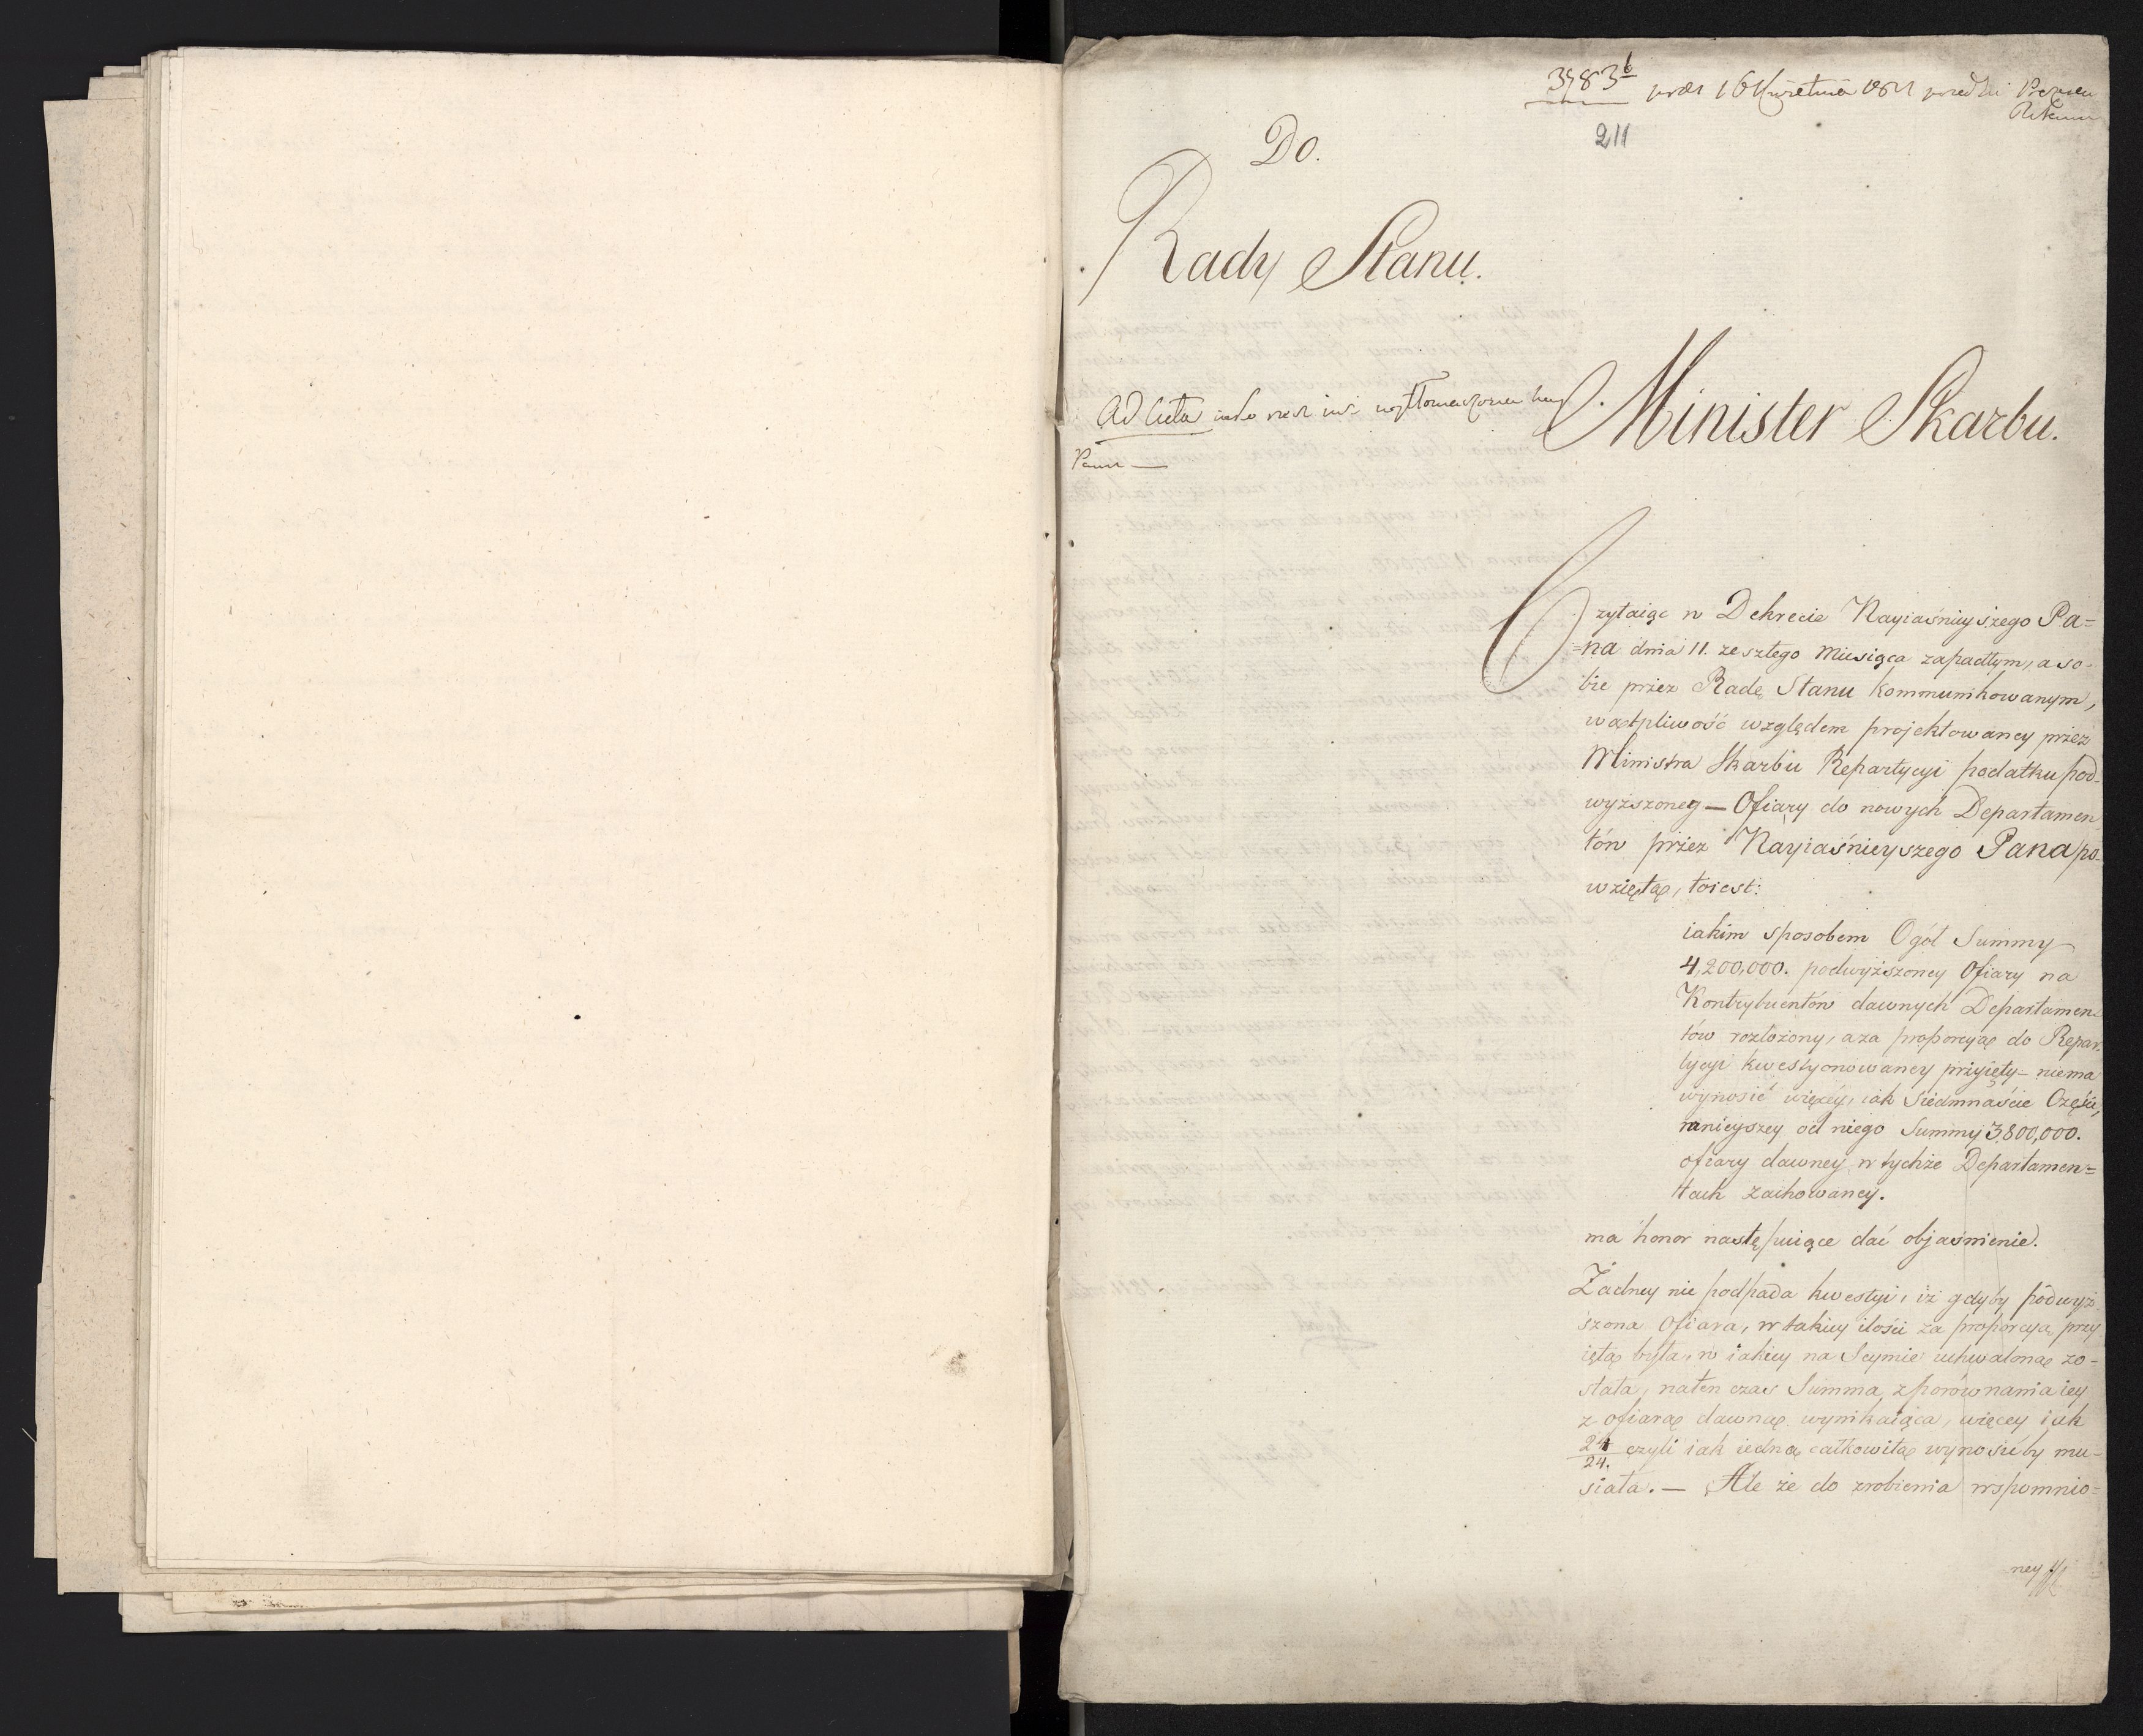 3783 b
16 Kwietnia 1811
211
Do.
Rady Stanu.
Ad Acta
Minister Skarbu.
Czytaiąc w Dekrecie Nayiaśnieyszego Pa=
=na dnia 11. zeszłego Miesiąca zapadłym, a so-
bie przez Radę Stanu kommunikowanym,
wątpliwość względem projektowaney przez
Ministra Skarbu Repartycyi podatku pod-
wyższoney — Ofiary do nowych Departamen
tów przez Nayiaśnieyszego Pana po-
wziętą, toiest:
iakim sposobem Ogół Summy
4,200,000. podwyższoney Ofiary na
Kontrybuentów dawnych Departamen-
tów rozłożony, a za proporcyą do Repar-
tycyi kwestyonowaney przyięty — niema
wynosić więcey, iak Siedmnaście Części,
mnieyszey od niego Summy 3,800,000.
ofiary dawney w tychże Departamen=
tach zachowaney.
ma honor następuiące dać objaśnienie.
Żadney nie podpada kwestyi, iż gdyby podwyż-
szona Ofiara, w takiey ilości za proporcyą przy
iętą była, w iakiey na Seymie uchwaloną zo-
stała, naten czas Summa z porównania iey
z ofiarą dawną wynikaiąca, więcey iak
24/24. czyli iak iedną całkowitą wynosićby mu-
siała. — Ale że do zrobienia wspomnio=
ney